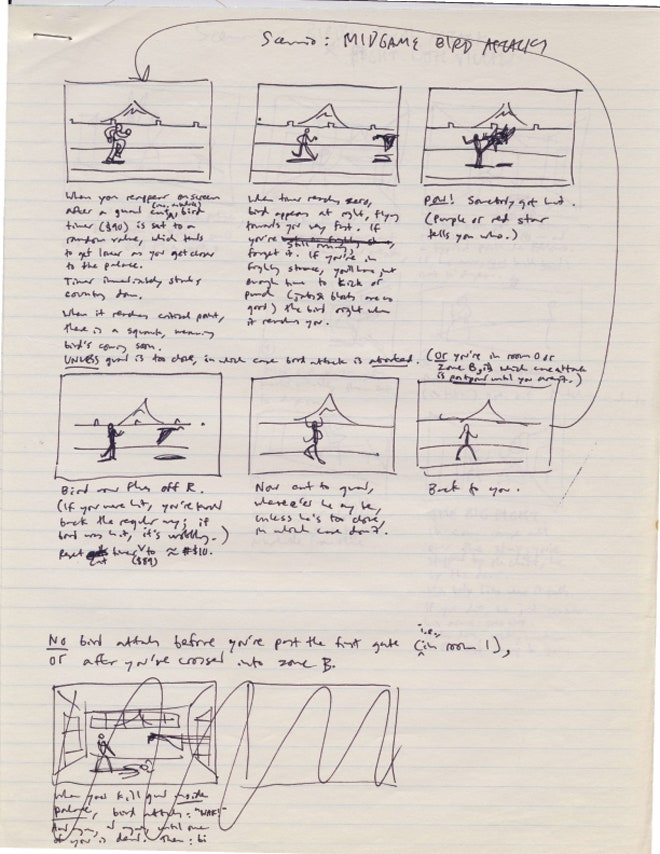 Scenario: MIDGAME BIRD ATTACKS
When you reappear onscreen
after a guard cut, bird
(inc, initials)
timer ($90) is set to a
random value, which tends
to get lower as you get closer
to the palace.
Timer immediately starts
counting down.
When it reaches critical point,
there is a squawk, meaning
bird's coming soon.
UNLESS guard is too close, in which case bird attack is aborted.
When timer reaches zero,
bird appears at right, flying
towards you very fast. If
you're
still running,
forget it. If you're in
fighting stance, you'll have just
enough time to kick or
punch
good) the bird right when
it reaches you.
POW! Somebody got hit.
(Purple or red star
tells you who.)
(Or you're in room 0 or
zone B, in which case attack
is postponed until you exit.)
Bird now flies off R.
(If you were hit, you're knocked
back the regular way; if
bird was hit, it's wobbly.)
Reset timer to ≈ #$10.
cut ($89)
Now cut to guard,
where'er he may be,
unless he's too close,
in which case don't.
Back to you.
No bird attacks before you're past the first gate (i.e., in room 1),
or after you've crossed into zone B.
When you kill guard inside
palace, bird attacks: "WAK!"
And again, & again, until one
of you is dead. Then: bi